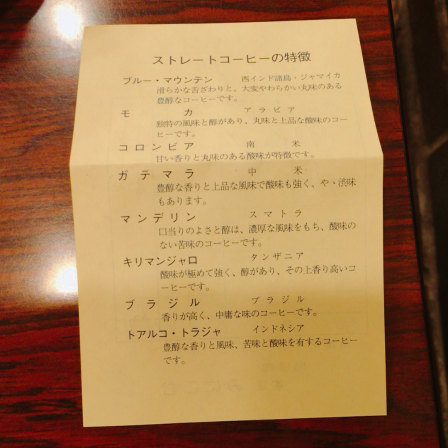 ストレートコーヒーの特徴
ブルー・マウンテン 西インド諸島・ジャマイカ
滑らかな舌ざわりと、大変やわらかい丸味のある
豊醇なコーヒーです。
モカ アラビア
独特の風味と醇があり、丸味と上品な酸味のコー
ヒーです。
コロンビア 南米
甘い香りと丸味のある酸味が特徴です。
ガテマラ 中米
豊醇な香りと上品な風味で酸味も強く、やゝ渋味
もあります。
マンデリン スマトラ
口当りのよさと醇は、濃厚な風味をもち、酸味の
ない苦味のコーヒーです。
キリマンジャロ タンザニア
酸味が極めて強く、醇があり、その上香り高いコ
ーヒーです。
ブラジル ブラジル
香りが高く、中庸な味のコーヒーです。
トアルコ・トラジャ インドネシア
豊醇な香りと風味、苦味と酸味を有するコーヒー
です。